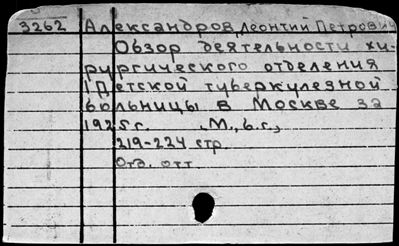 3262 Александров, Леонтий Петрович
Обзор деятельности хи-
рургического отделения
1 Детской туберкулезной
больницы в Москве за
1925 г. М., б.г.,
219-224 стр.
Отд. отт